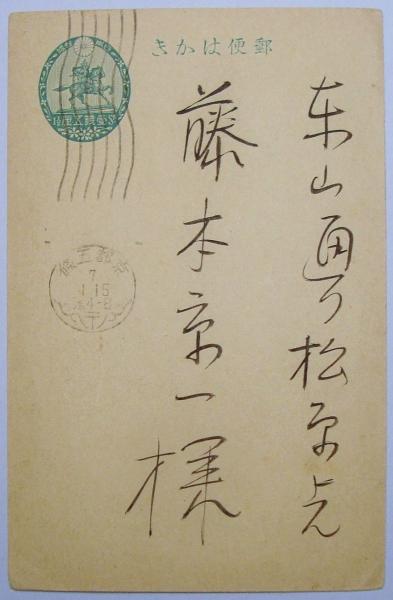 郵便はかき
東山通り松原上ル
藤木京一様
京都五條
7
1.15